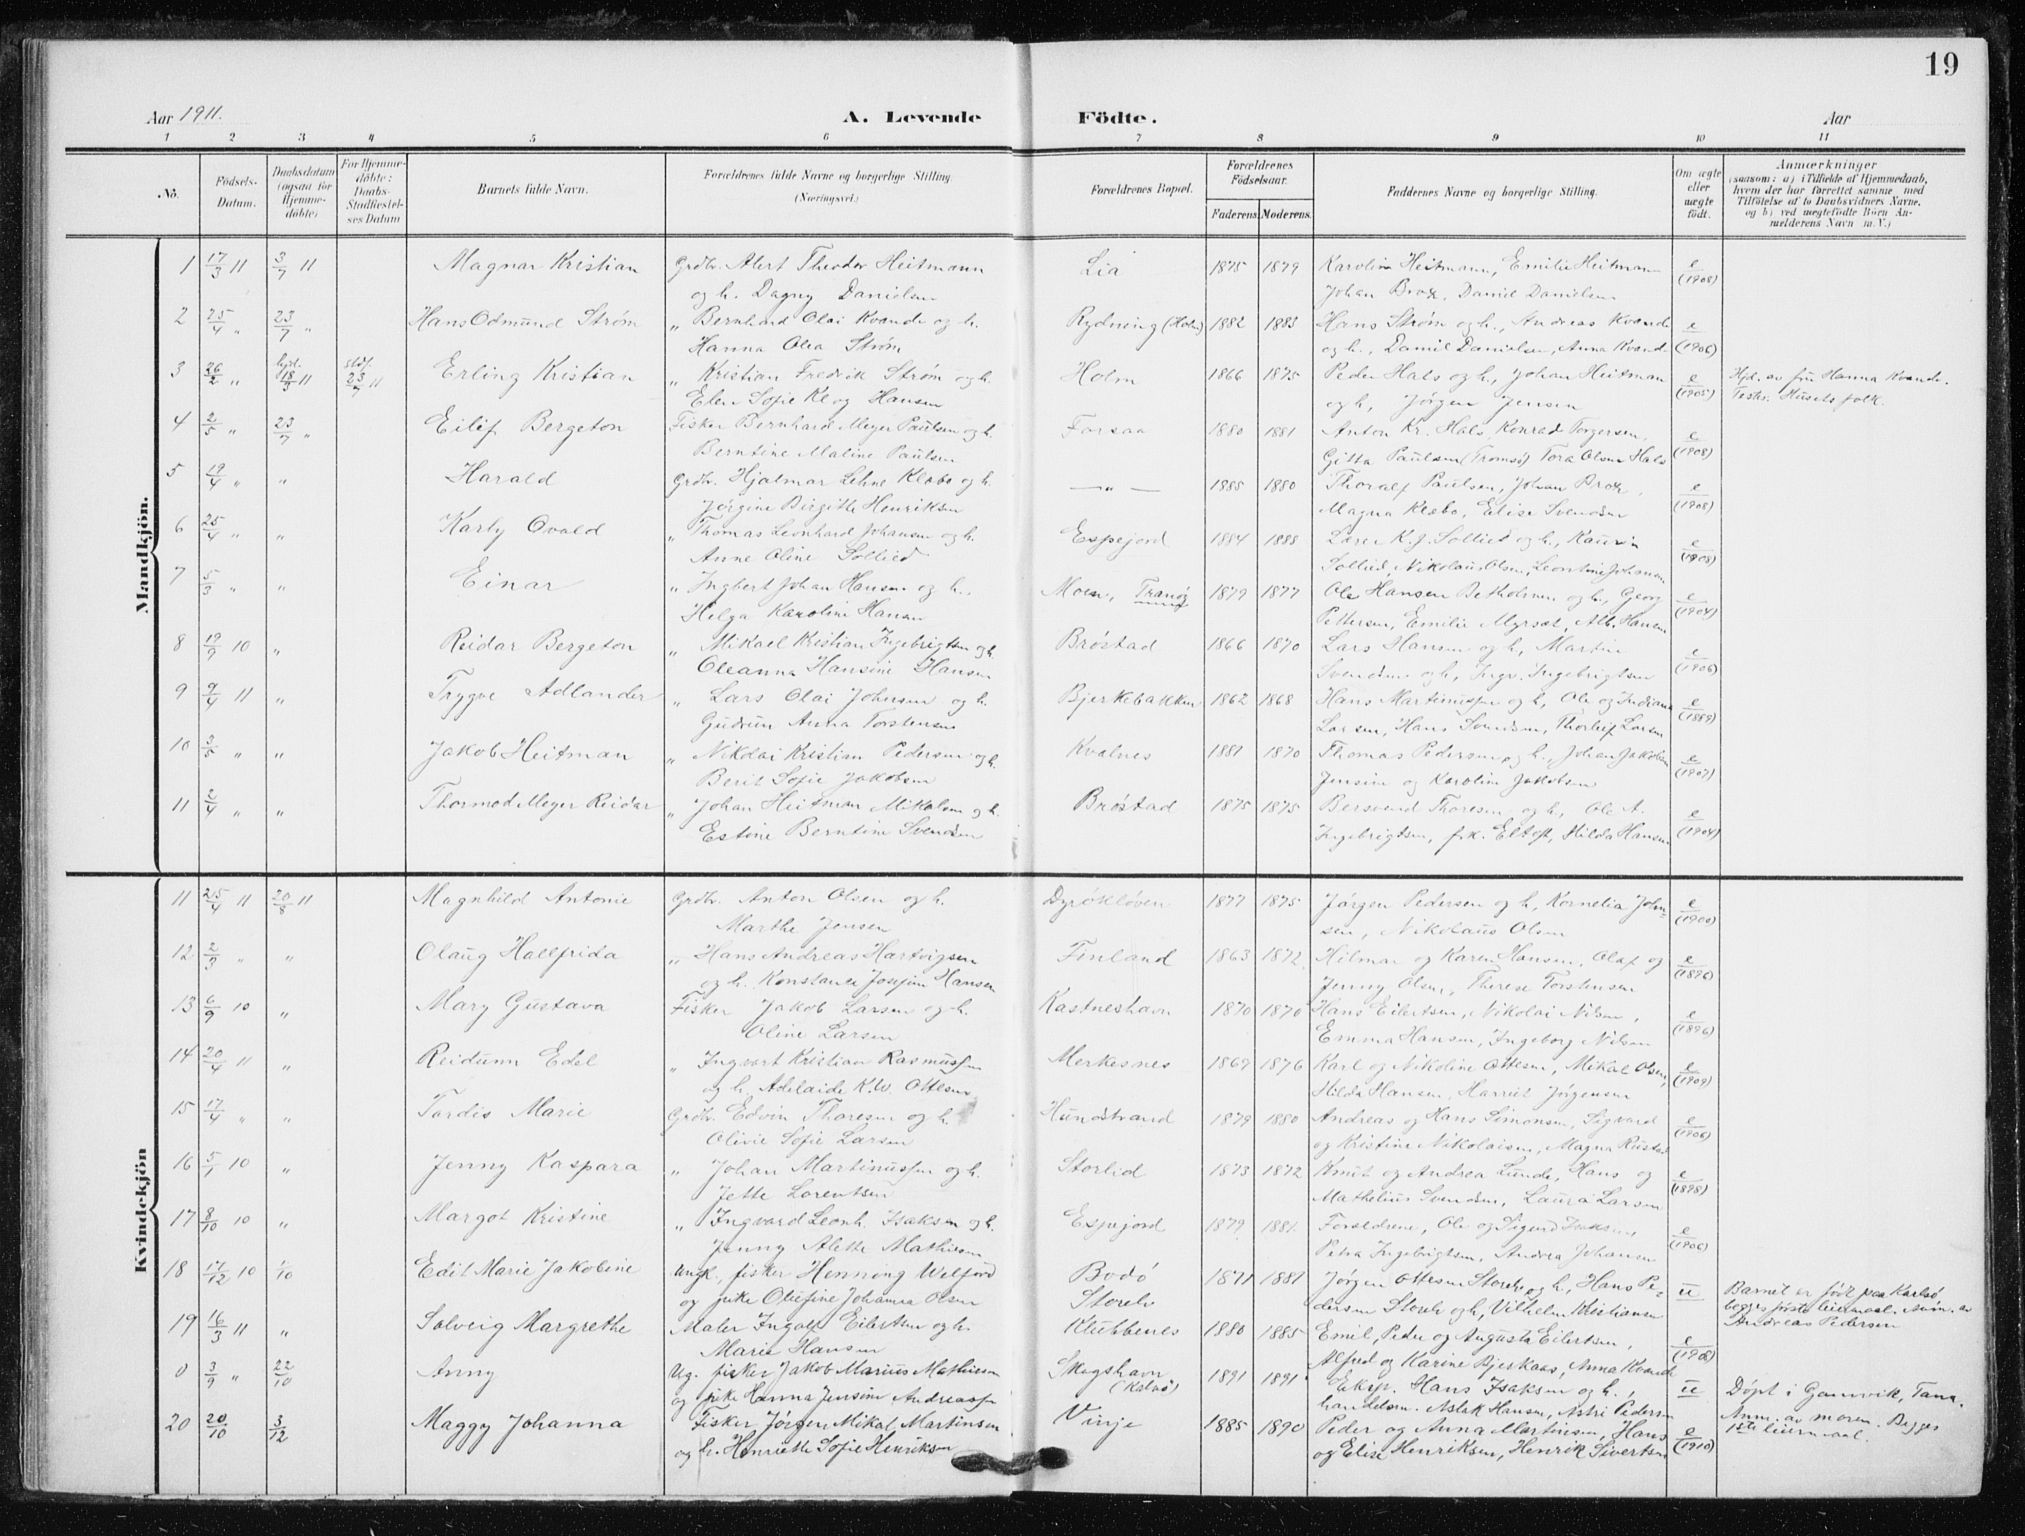 19
Aar 1911. A. Levende Födte. Aar
1 2 3 4 5 6 7 8 9 10 11
No. Födsels-Datum. Daabsdatum (ogsaa for Hjemmedöbte) For Hjemmedöbte: Daabs-Stadfæstelses Datum Barnets fulde Navn. Forældrenes fulde Navne og borgerlige Stilling. (Næringsvei.) Forældrenes Bopæl. Forældrenes Födselsaar. Faderens. Moderens. Faddernes Navne og borgerlige Stilling. Om ægte eller uægte födt. Anmærkninger (saasom: a) i Tilfælde af Hjemmedaab, hvem der har forrettet samme med Tilföielse af to Daabsvidners Navne, og b) ved uægtefödte Börn Anmelderens Navn m.V.)
Mandkjön.
1 17/3 11 3/7 11 Magnar Kristian Grdbr. Alert Theodor Heitmann Lia 1875 1879 Karolina Heitmann, Emilie Heitmann e (1908)
og h. Dagny Danielsen Johan Brox, Daniel Danielsen
2 25/4 " 23/7 " Hans Odmund Strøm " Bernhard Olai Kvande og h. Rydning (Holm) 1882 1883 Hans Strøm og h., Andreas Kvande e (1906)
Hanna Olea Strøm og h., Daniel Danielsen, Anna Kvande
3 26/2 " hjd. 18/3 11 stdf. 23/7 11 Erling Kristian " Kristian Fredrik Strøm og h. Holm 1866 1875 Peder Hals og h., Johan Heitman e (1905) Hjd. av fru Hanna Kvande.
Sofie Hansen og h, Jørgen Jensen Husets folk.
4 2/5 " 23/7 " Eilif Bergeton Fisker Bernhard Meyer Paulsen og h. Forsaa 1880 1881 Anton Kr. Hals, Konrad Torgersen, e (1908)
Berntine Maline Paulsen Gitta Paulsen (Tromsø) Tora Olsen Hals
5 19/4 " " Harald Grdbr. Hjalmar Lehne Klæbo og h. — " — 1885 1880 Thoralf Paulsen, Johan Brox, e (1908)
Jørgine Birgitte Henriksen Magna Klæbo, Elise Svendsen
6 25/4 " " Karly Ovald " Thomas Leonhard Johansen og h. Espejord 1884 1888 Lærer K. J. Sollied og h., e (1908)
Anne Oline Sollied Sollied, Nikolaus Olsen, Leontine Johansen
7 5/3 " " Einar " Ingbert Johan Hansen og h., Moen, Tranöy 1879 1877 Ole Hansen og h., Georg e (1904)
Helga Karoline Hansen Pettersen, Emilie Myrset, Alb. Hansen
8 19/9 10 " Reidar Bergeton " Mikael Kristian Ingebrigtsen og h. Brøstad 1866 1870 Lars Hansen og h, Martin e (1906)
Oleanna Hansine Hansen Svendsen og h, Ingv. Ingebrigtsen
9 9/4 11 " Trygve Adlander " Lars Olai Johnsen og h. Bjerkebakken 1862 1868 Hans Martinussen og h, Ole og Indiana e (1889)
Gudrun Anna Torstensen Larsen, Hans Svendsen, Thorleif Larsen
10 3/5 " " Jakob Heitman " Nikolai Kristian Pedersen og h. Kvalnes 1881 1870 Thomas Pedersen og h., Johan Jakobsen e (1907)
Berit Sofie Jakobsen Jensine og Karoline Jakobsen
11 2/4 " " Thormod Meyer Reidar " Johan Heitman Mikalsen og h. Brøstad 1875 1875 Bersvend Thoresen og h, Ole A. e (1904)
Estine Berntine Svendsen Ingebrigtsen, frk. Eltoft, Hilda Hansen
Kvindekjön
11 25/4 11 20/8 11 Magnhild Antonie Grdbr. Anton Olsen og h. Dyrökløven 1877 1875 Jørgen Pedersen og h, Kornelia John- e (1900)
Marthe Jensen sen, Nikolaus Olsen
12 2/3 " " Olaug Hallfrida " Hans Andreas Hartvigsen Finland 1863 1872 Hilmar og Karen Hansen, Olaf og e (1896)
og h. Konstance Josefine Hansen Jenny Olsen, Therese Torstensen
13 6/9 10 " Mary Gustava Fisker Jakob Larsen og h. Kastneshavn 1870 1870 Hans Eilertsen, Nikolai Nilsen, e (1896)
Oline Larsen Emma Hansen, Ingeborg Nilsen
14 20/4 11 " Reidunn Edel " Ingvart Kristian Rasmussen Merkesnes 1869 1876 Karl og Nikoline Ottesen, Mikal Olsen, e (1909)
og h. Adelaide K. W. Ottesen Hilda Hansen, Harriet Jørgensen
15 17/4 " " Tordis Marie Grdbr. Edvin Thoresen og h. Hundstrand 1879 1880 Andreas og Hans Simonsen, Sigvard e (1906)
Olivie Sofie Larsen og Kristine Nikolaisen, Magna Rustad
16 5/1 10 " Jenny Kaspara " Johan Martinussen og h. Storlid 1873 1872 Knut og Andrea Lunde, Hans og e (1898)
Jette Lorentsen Mathelius Svendsen, Laura Larsen
17 8/10 10 " Margot Kristine " Ingvard Leonh. Isaksen og h. Espejord 1879 1881 Forældrene, Ole og Sigurd Isaksen, e (1906)
Jenny Alette Mathisen Petra Ingebrigtsen, Andrea Johansen
18 17/12 10 1/10 Edit Marie Jakobine Ungk. fisker Henning Welford Bodö 1871 1881 Jørgen Ottesen Storelv og h, Hans Pe- u Barnet er født paa Karlsö
og pike Oliefine Johanna Olsen Storelv dersen Storelv og h, Vilhelm Kristiansen begges første leiermaal. Anm. av
19 16/3 11 " Solveig Margrethe Maler Ingolf Eilertsen og h. Klubbenes 1880 1885 Emil, Peder og Augusta Eilertsen, e Andreas Pedersen
Marie Hansen Alfred og Karine Bjerkaas, Anna Kvande
0 3/9 " 22/10 Anny Ug. fisker Jakob Marius Mathisen Skogshavn 1891 1891 Eksp. Hans Isaksen og h., u Döpt i Gamvik, Tana.
og pike Hanna Jensine Andreassen Aslak Hansen, Astri Pedersen Anm. av moren. Begges
20 20/10 3/12 Maggy Johanna Fisker Jørgen Mikal Martinsen Vinje 1885 1890 Peder og Anna Martinsen, Hans e (1910) 1ste leiermaal.
og h. Henriette Sofie Henriksen og Elise Henriksen, Henrik Sivertsen